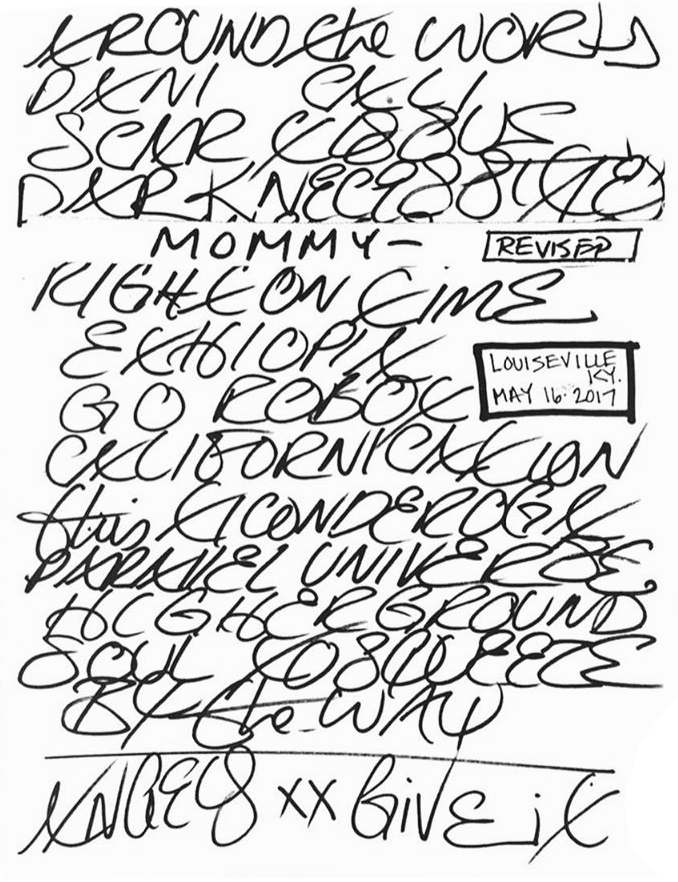 AROUND the WORLD
DANI CALI
SCAR TISSUE
DARK NECESSITIES
MOMMY –
REVISED
RIGHT ON TIME
ETHIOPIA
LOUISEVILLE
KY.
MAY 16. 2017
GO ROBOT
CALIFORNICATION
this TICONDEROGA
PARALLEL UNIVERSE
HIGHER GROUND
SOUL TO SQUEEZE
BY the WAY
ANGELS XX GiVE iT